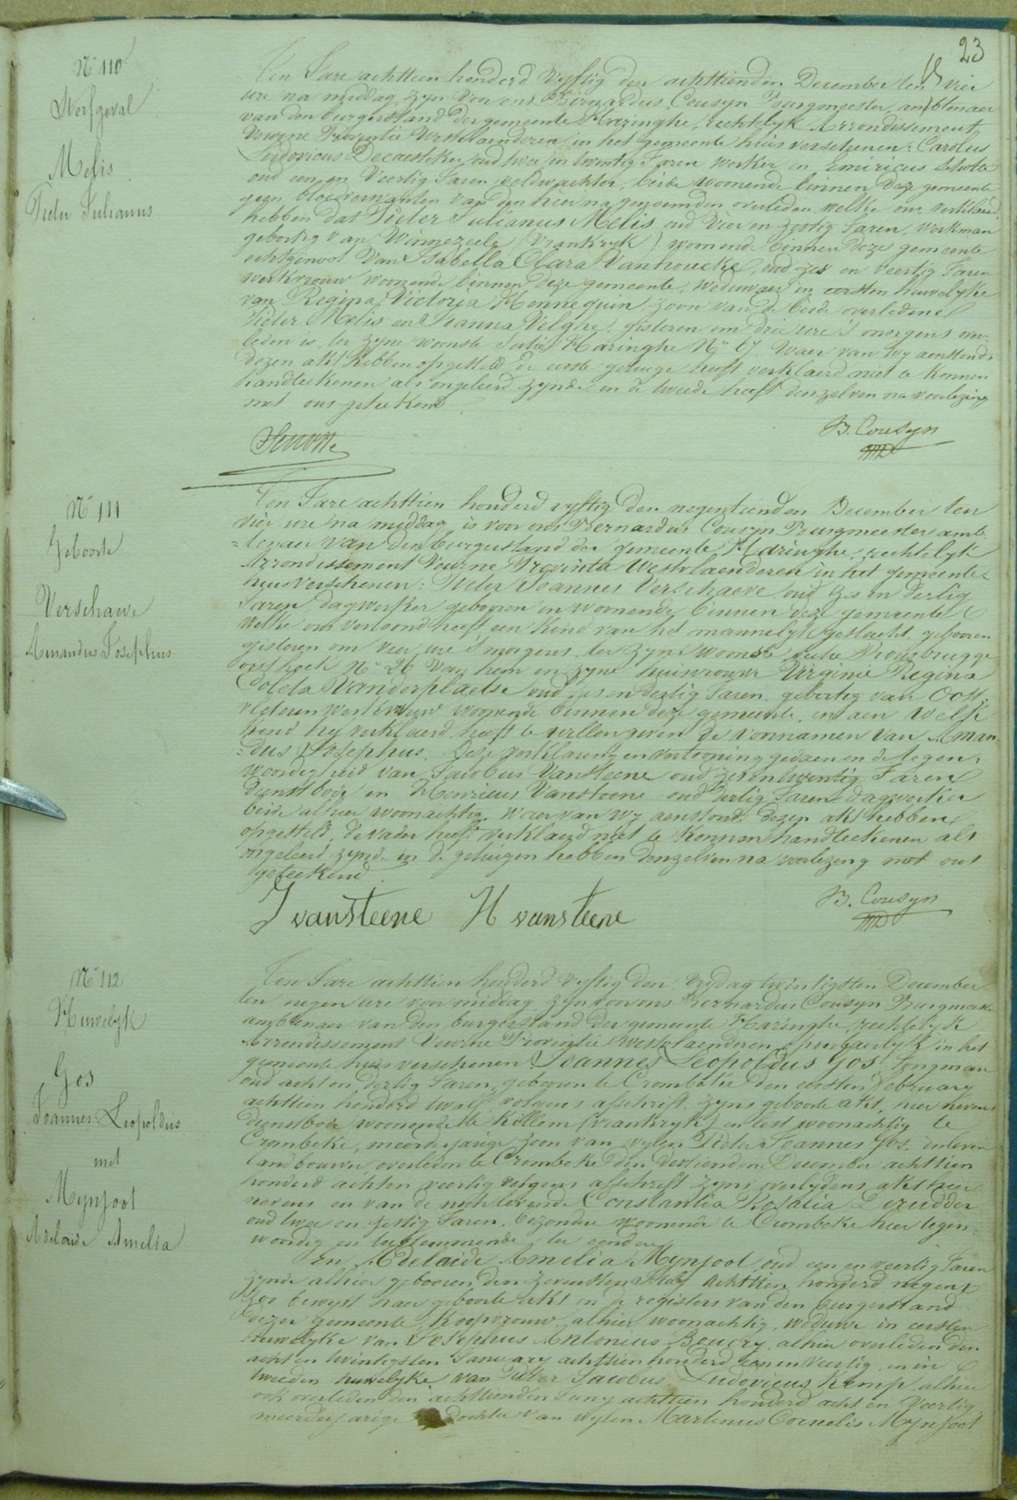 23
N° 110
Sterfgeval
Melis
Pieter Julianus
Ten Jare achttien honderd vyftig den achttienden December ten vier
ure na middag, zyn voor ons Bernardus Cousyn Burgmeester, ambtenaer
van den burgerstand der gemeente Haringhe, rechtelyk Arrondissement
Veurne Provintie Westvlaenderen, in het gemeente huis verschenen: Carolus
Ludovicus Decaesteker, oud twee en twintig Jaren werker, en Emiricus
oud een en Veertig Jaren veldwachter, beide woonende binnen deze gemeente
geen bloedverwanten van den hier na genoemden overleden, welke ons verklaerd
hebben dat Pieter Julianus Melis oud Vier en zestig Jaren, werkman
geboortig van Winnezeele (Vrankryk) woonende binnen deze gemeente
echtgenoot van Isabella Clara Vanhoucke, oud zes en veertig Jaren
werkvrouw woonende binnen deze gemeente, weduwaer in eersten huwelyke
van Regina Victoria Hennequin, zoon van de beide overledene
Pieter Melis en Joanna Velghe, gisteren om drie ure 's morgens over-
leden is, ter zyne woonste Statie Haringhe N° 67 Waer van wy aenstonds
dezen akt hebben opgesteld, de eerste getuige heeft verklaerd niet te konnen
handteekenen als ongeleerd zynde en de tweede heeft denzelven na voorlezing
met ons geteekend
B. Cousyn
N° 111
Geboorte
Verschaeve
Amandus Josephus
Ten Jare achttien honderd vyftig den negentienden December ten
vier ure na middag, is voor ons Bernardus Cousyn Burgmeester amb-
=tenaer van den burgerstand der gemeente Haringhe, rechtelyk
Arrondissement Veurne Provintie Westvlaenderen in het gemeente-
huis verschenen: Pieter Joannes Verschaeve oud zes en dertig
Jaren dagwerker geboren en woonende binnen deze gemeente
welke ons vertoond heeft een kind van het mannelyk geslacht, geboren
gisteren om vier ure 's morgens, ter zyne woonste
N° 26 van hem en zyne huisvrouw Virginie Regina
Coleta Vanderplaetse oud zes en dertig Jaren, geboortig van Oost-
vleteren werkvrouw woonende binnen deze gemeente, en aen welk
kind hy verklaerd heeft te willen geven de voornamen van Aman-
=dus Josephus. Deze verklaering en vertooning gedaen in de tegen-
woordigheid van Jacobus Vansteene oud zes en twintig Jaren
dienstbode en Henricus Vansteene oud dertig Jaren dagwerker
beide alhier woonachtig, Waer van wy aenstonds dezen akt hebben
opgesteld, de vader heeft verklaerd niet te konnen handteekenen als
ongeleerd zynde en de getuigen hebben denzelven na voorlezing met ons
geteekend
J vansteene H vansteene
B. Cousyn
N° 112
Huwelyk
Gos
Joannes Leopoldus
met
Mynjoot
Adelaide Amelia
Ten Jare achttien honderd vyftig den vrydag twintigsten December
ten negen ure voor middag zyn voor ons Bernardus Cousyn Burgmeester
ambtenaer van den burgerstand der gemeente Haringhe, rechtelyk
Arrondissement Veurne Provintie Westvlaenderen, in het
gemeente huis verschenen Joannes Leopoldus Gos, Jongman
oud acht en dertig Jaren, geboren te Crombeke den eersten February
achttien honderd twaelf volgens afschrift zyns geboorte akt, hier nevens
dienstbode woonende te Killem (Vrankryk) en lest woonachtig te
Crombeke, meerderjarige zoon van wylen Pieter Joannes Gos, in leven
landbouwer overleden te Crombeke den dertienden December achttien
honderd acht en veertig volgens afschrift zyns overlydens akt hier
nevens en van de noch levende Constantia Rosalia Deruddere
oud twee en sestig Jaren, byzondere woonende te Crombeke hier tegen-
woordig en toestemmende, ter eendere
En Adelaide Amelia Mynjoot oud een en veertig Jaren
zynde alhier geboren den achttien honderd negen
zoo bewyst haer geboorte akt in de registers van den burgerstand
dezer gemeente, alhier woonachtig, weduwe in eersten
huwelyke van Josephus Antonius Beucry, alhier overleden den
acht en twintigsten January achttien honderd een en veertig, en in
tweeden huwelyke van Pieter Jacobus Ludovicus Kemp, alhier
ook overleden den achttienden achttien honderd acht en veertig
meerderjarige dochter van wylen Martinus Cornelis Mynjoot